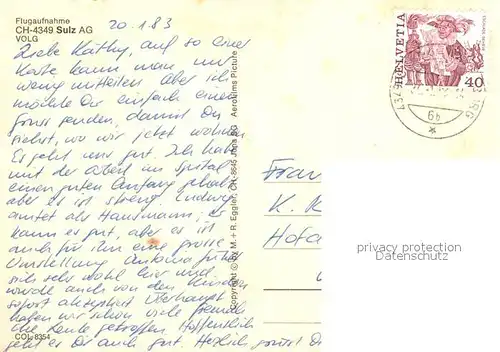 Flugaufnahme
CH-4349 Sulz AG
VOLG
20.1.83
HELVETIA
40
Liebe Käthy, auf so einer
Karte kann man nur
wenig mitteilen aber ich
möchte Dir einfach einen
Gruss senden, damit Du
siehst, wo wir jetzt wohnen
Es geht uns gut. Ich habe
mit der Arbeit im Spital
einen guten Anfang gehabt
aber es ist streng. Ludwig
amtet als Hausmann; er
kann es gut, aber es ist
auch für ihn eine grosse
Umstellung. fühlt
sich sehr wohl hier und
wurde auch von den Kindern
sofort akzeptiert Überhaupt
haben wir schon viele freundli
che Leute getroffen Hoffentlich
geht es Dir auch gut. Herzlich grüsst Di
Copyright © by M. + R. Eggler, CH-8645 Jona SG Aeroflims Picture
Frau
K. K
Hofa
privacy protection
Datenschutz
COL 8354